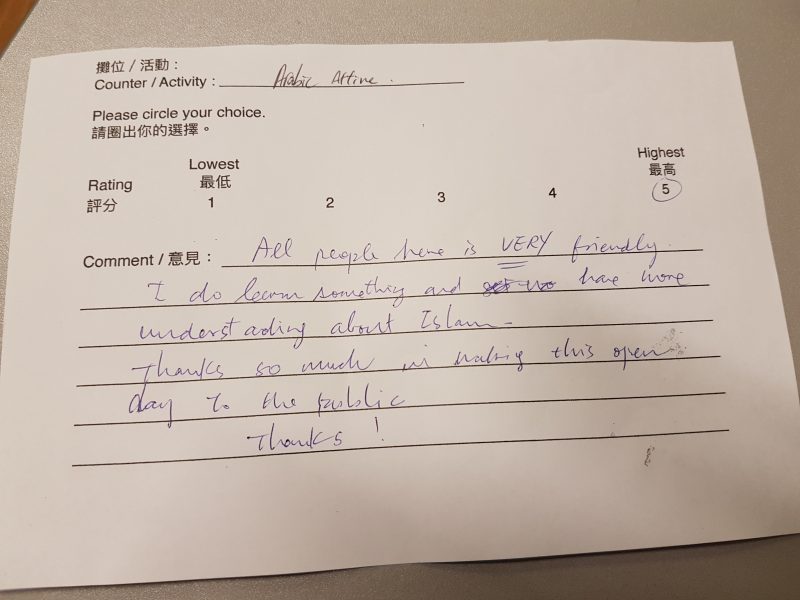 攤位 / 活動：
Counter / Activity : Arabic Attire .
Please circle your choice.
請圈出你的選擇。
Lowest Highest
最低 最高
Rating
評分 1 2 3 4 5
Comment / 意見： All people here is VERY friendly.
I do learn something and have more
understading about Islam.
Thanks so much in making this open
day to the public
Thanks !